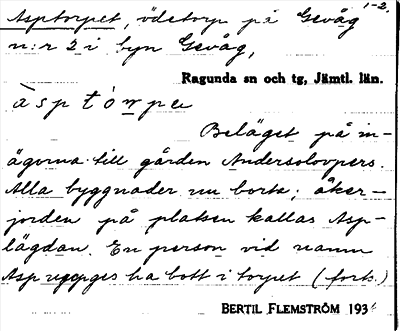 1-2.
Asptorpet, ödetorp på Gevåg
n:r 2 i byn Gevåg,
Ragunda sn och tg, Jämtl. län.
àsptórpe
Beläget på in-
ägorna till gården Andersolovpers.
Alla byggnader nu borta; åker-
jorden på platsen kallas Asp-
lägdan. En person vid namn
Asp uppges ha bott i torpet (forts.)
BERTIL FLEMSTRÖM 193